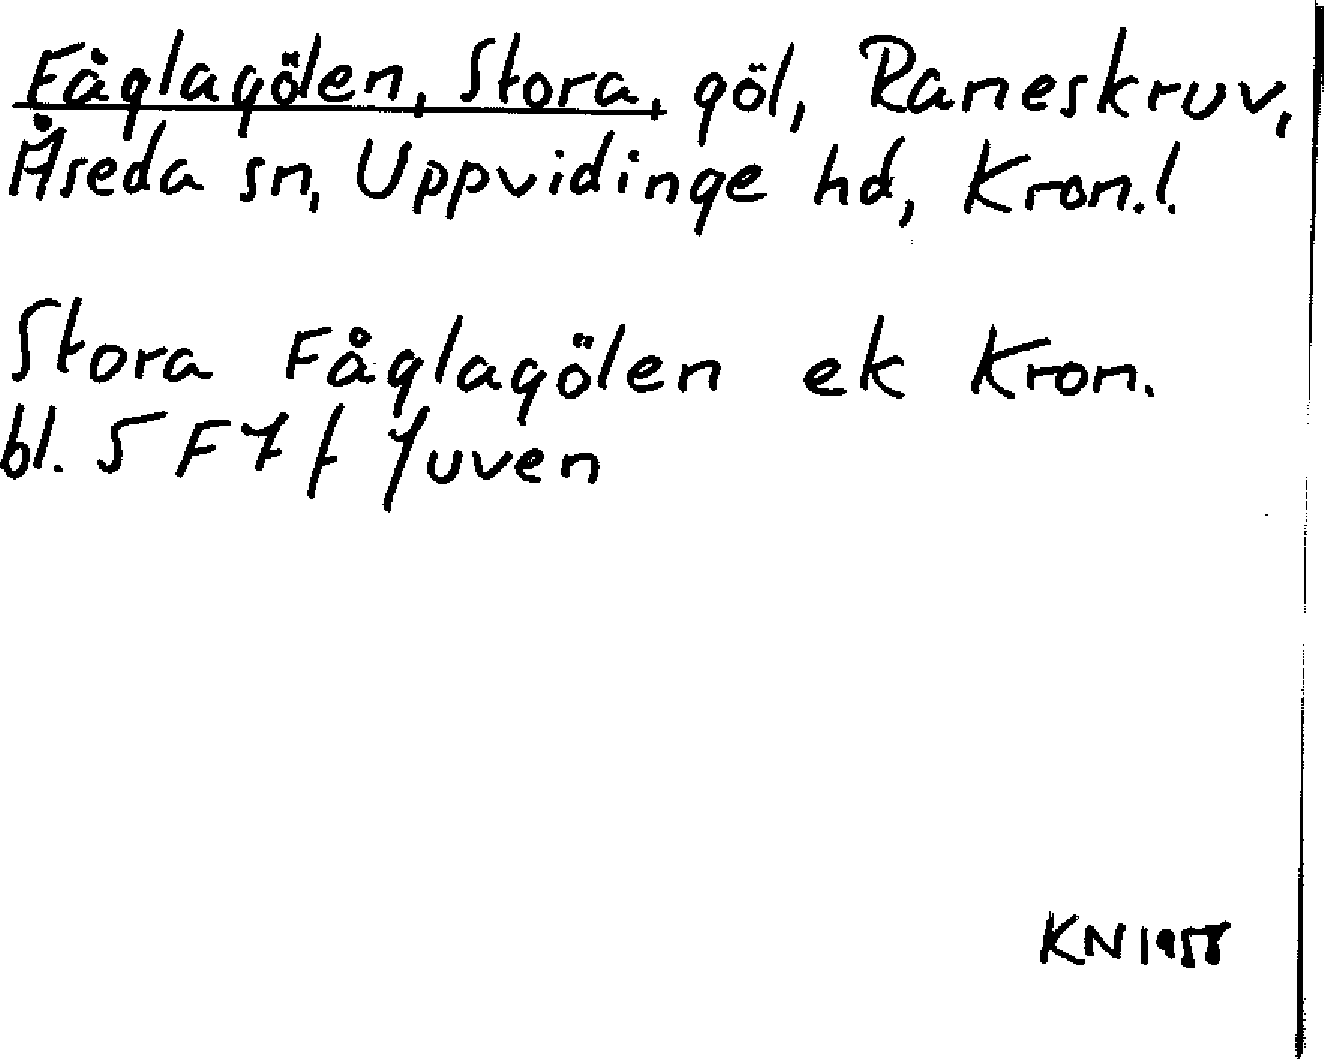 Fåglagölen, Stora, göl, Raneskruv,
Åseda sn, Uppvidinge hd, Kron.l.
Stora Fåglagölen ek Kron.
bl. 5 F 7 f Juven
KN 1958